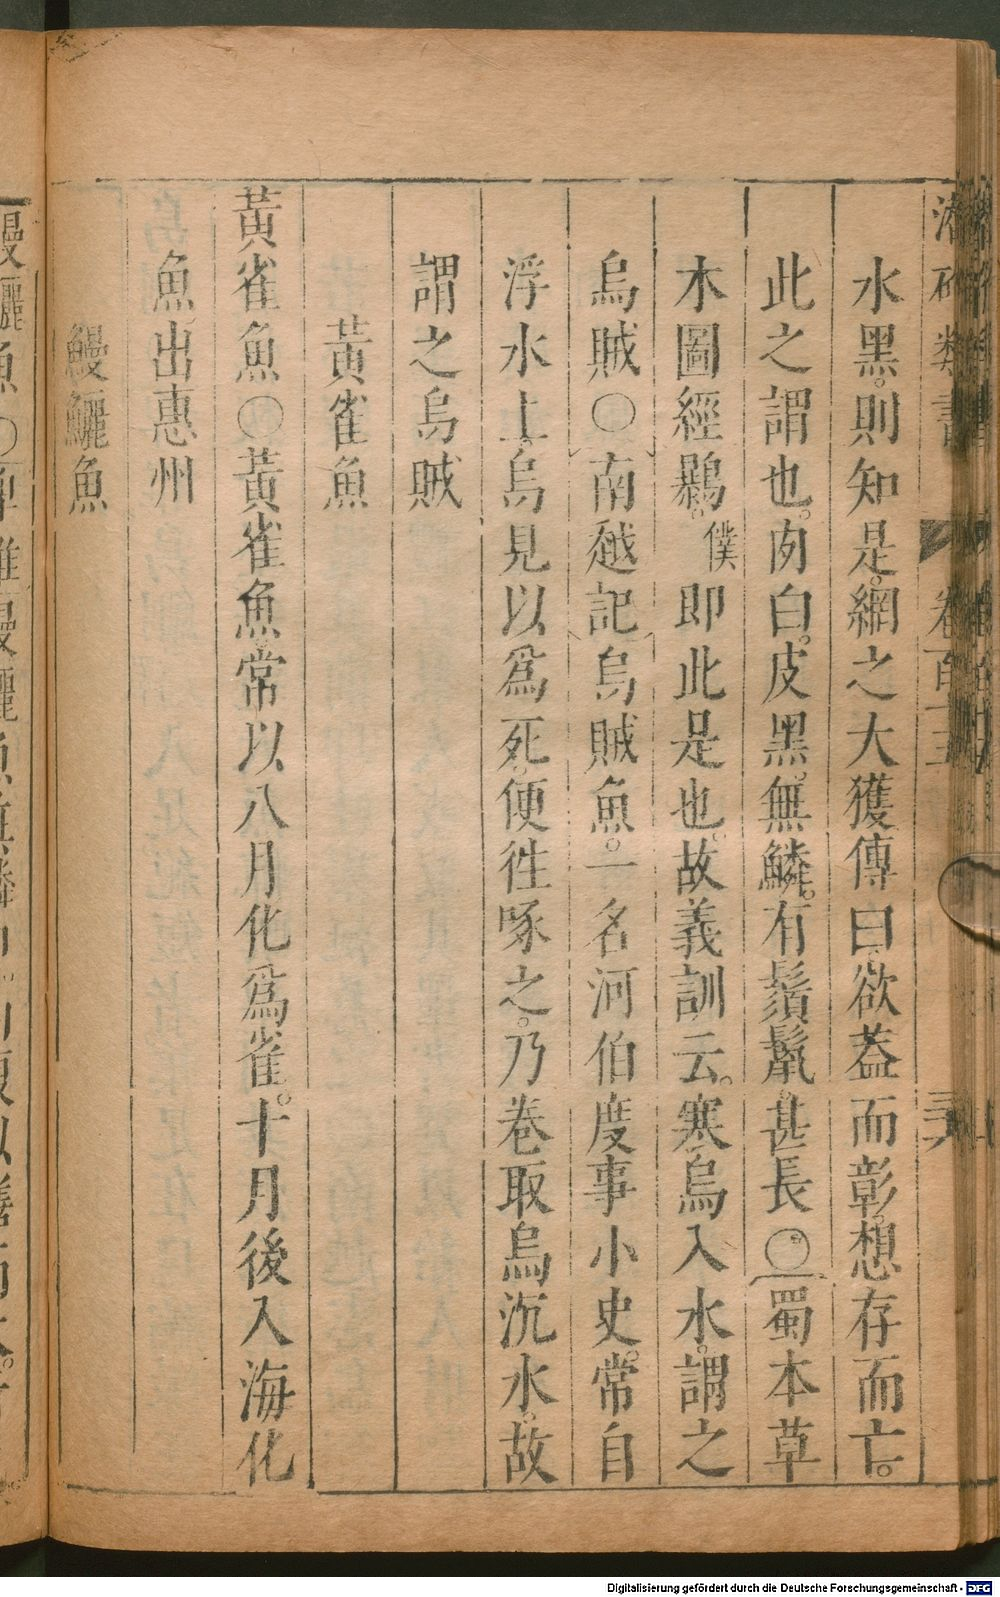 水黑則知是網之大獲傳曰欲蓋而彰想存而亡
此之謂也肉白皮黑無鱗有鬚鬣甚長〇蜀本草
木圖經鸔僕即此是也故義訓云寒烏入水謂之
烏賊〇南越記烏賊魚一名河伯度事小史常自
浮水上烏見以爲死便徃啄之乃卷取烏沉水故
謂之烏賊
黃雀魚
黃雀魚〇黃雀魚常以八月化爲雀十月後入海化
魚出惠州
鰻鱺魚
Digitalisierung gefördert durch die Deutsche Forschungsgemeinschaft - DFG